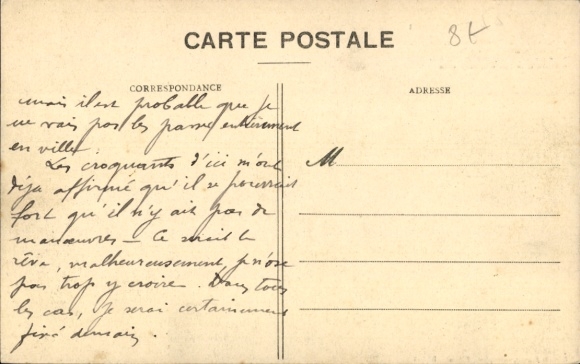 CARTE POSTALE
8t
CORRESPONDANCE
ADRESSE
mais il est probable que je
ne vais pas les passer entièrement
en ville.
Les croquants d'ici m'ont
déja affirmé qu'il se pourrait
fort qu'il n'y ait pas de
manœuvres — Ce serait le
rêve, malheureusement je n'ose
pas trop y croire. Dans tous
les cas, je serai certainement
fixé demain.
M